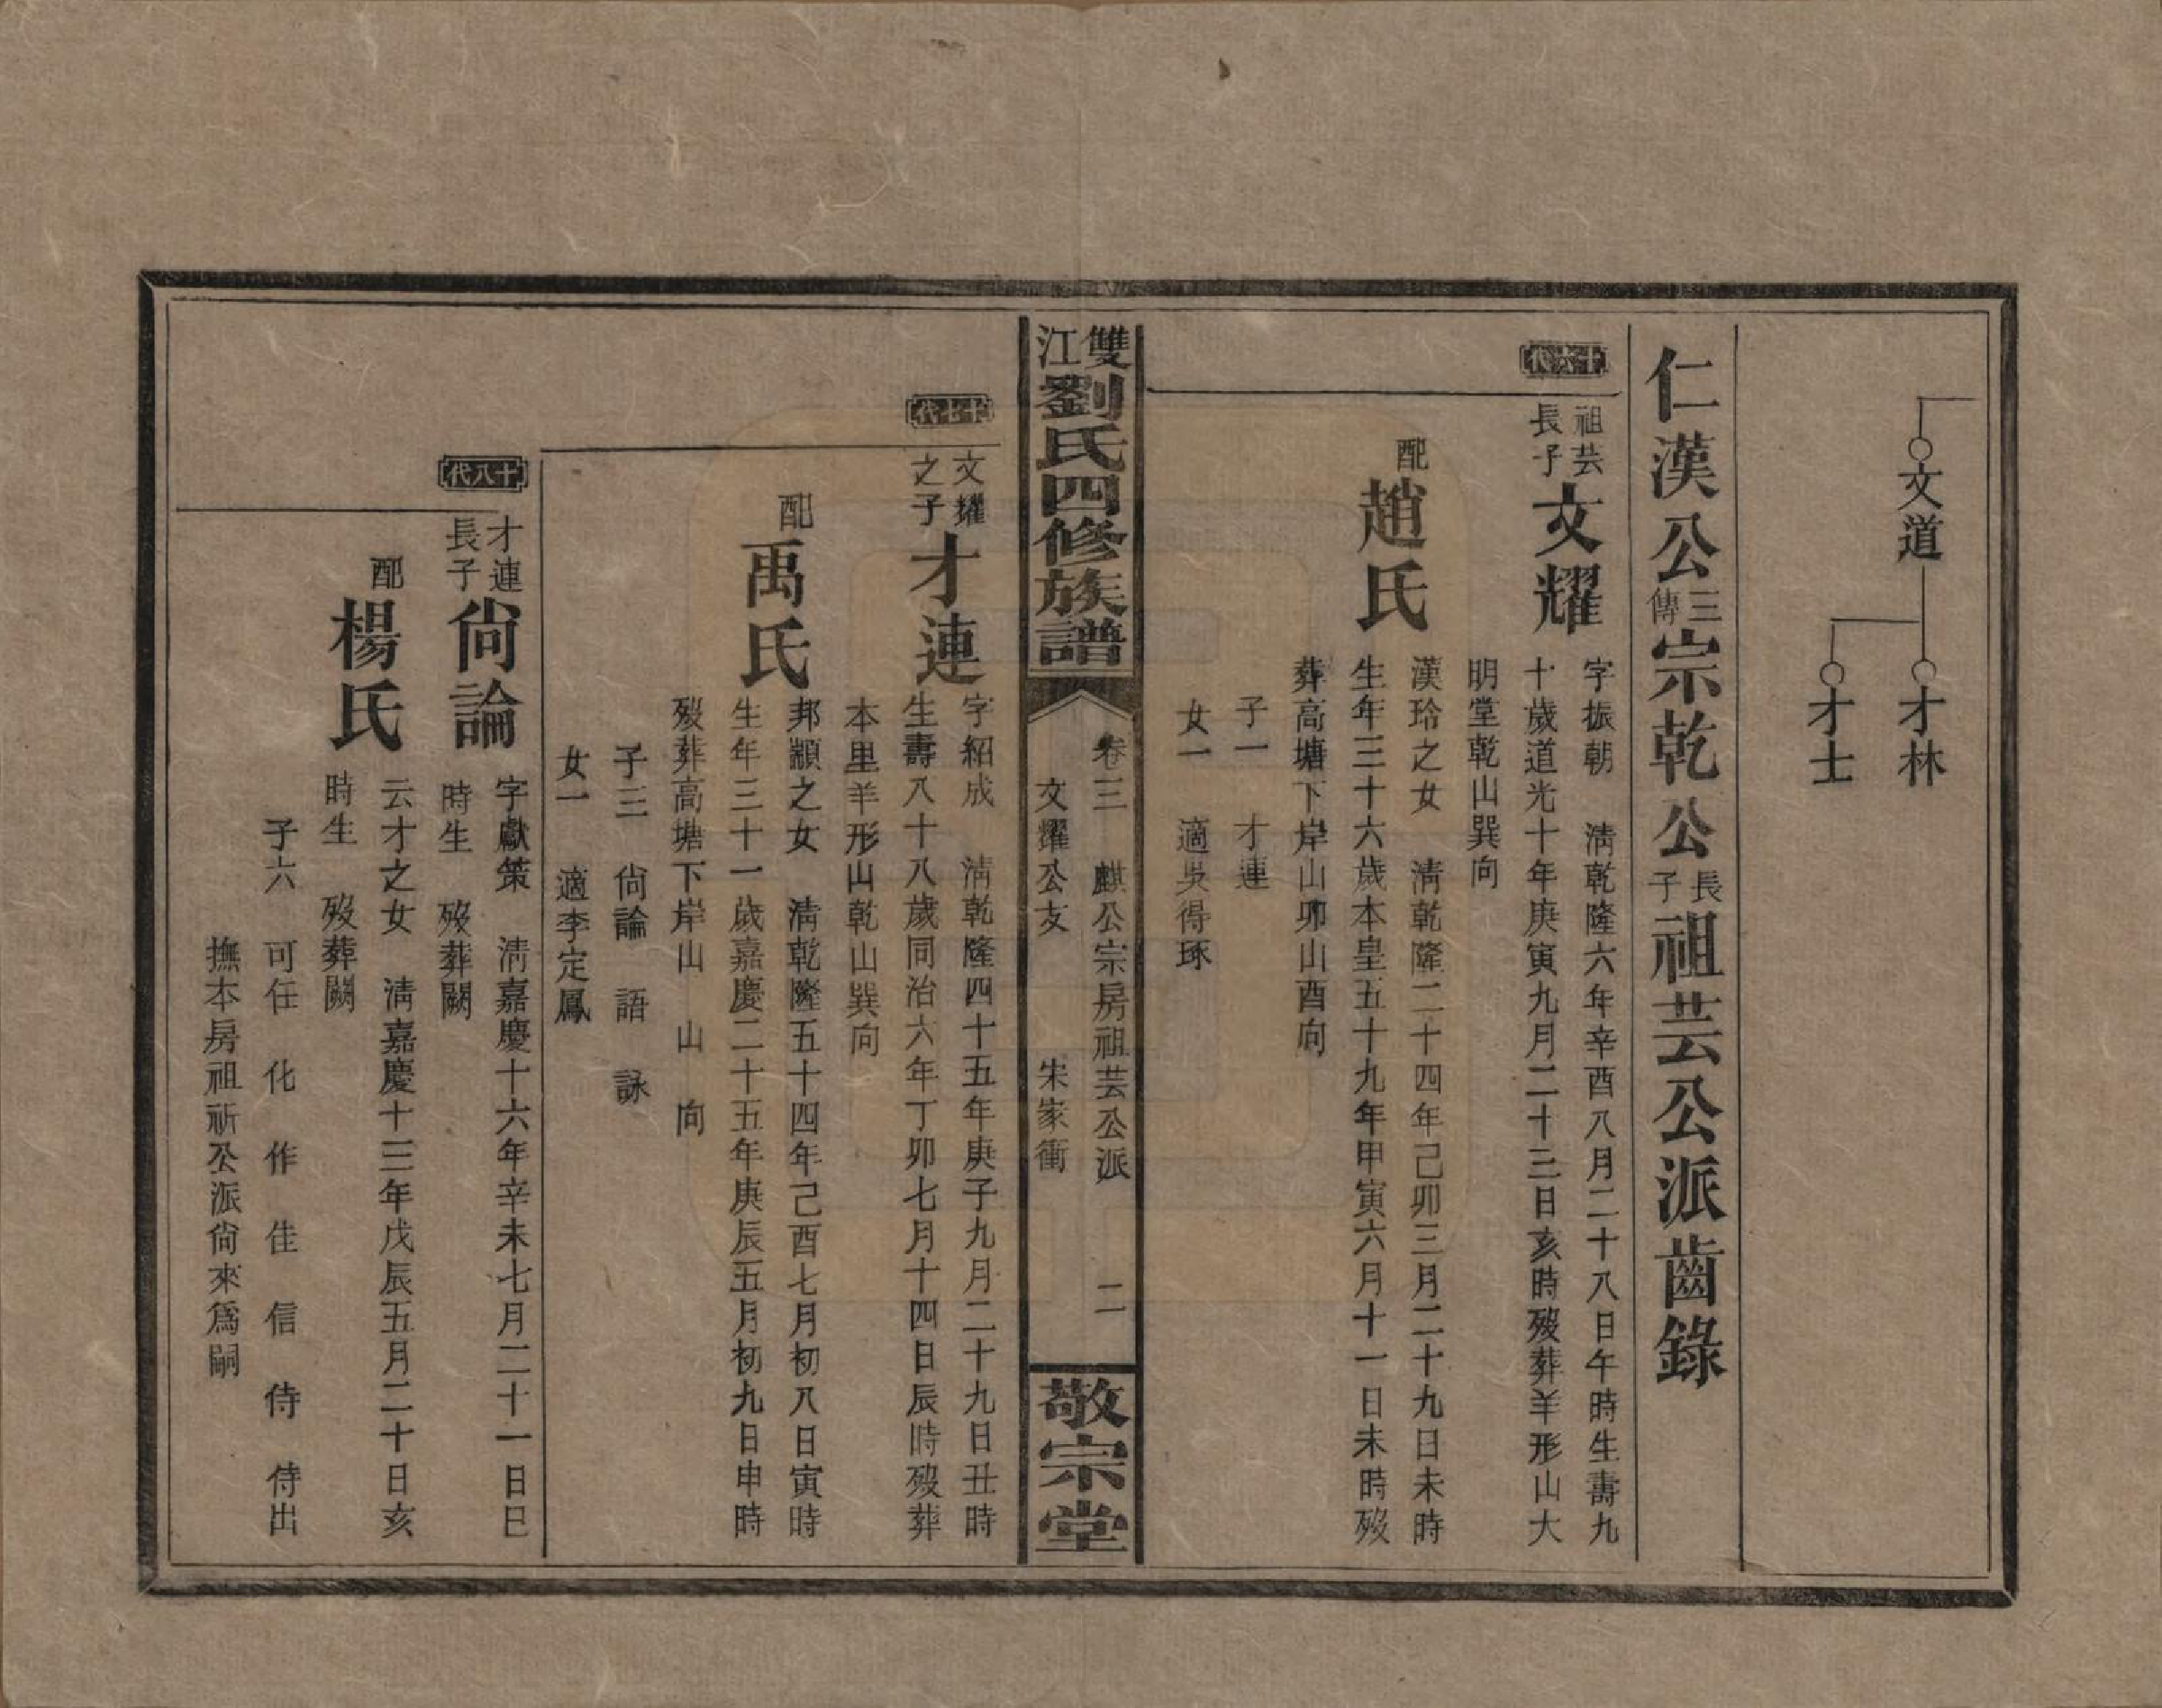 文道
才林
才士
仁漢公三傳宗乾公長子祖芸公派齒錄
十六代
祖芸長子文耀
字振朝 清乾隆六年辛酉八月二十八日午時生壽九
十歲道光十年庚寅九月二十三日亥時歿葬羊形山大
明堂乾山巽向
配趙氏
漢玲之女 清乾隆二十四年己卯三月二十九日未時
生年三十六歲本皇五十九年甲寅六月十一日未時歿
葬高塘下岸山卯山酉向
子一 才連
女一 適吳得琢
雙江劉氏四修族譜
卷三 麒公宗房祖芸公派 二
文耀公支 宋家衝
敬宗堂
十七代
文耀之子才連
字紹成 清乾隆四十五年庚子九月二十九日丑時
生壽八十八歲同治六年丁卯七月十四日辰時歿葬
本里羊形山乾山巽向
配禹氏
邦顓之女 清乾隆五十四年己酉七月初八日寅時
生年三十一歲嘉慶二十五年庚辰五月初九日申時
歿葬高塘下岸山 山 向
子三 尙論 語 詠
女一 適李定鳳
十八代
才連長子尙論
字獻策 清嘉慶十六年辛未七月二十一日巳
時生 歿葬闕
配楊氏
云才之女 清嘉慶十三年戊辰五月二十日亥
時生 歿葬闕
子六 可任 化 作 佳 信 侍 侍出
撫本房祖祈公派尙來爲嗣